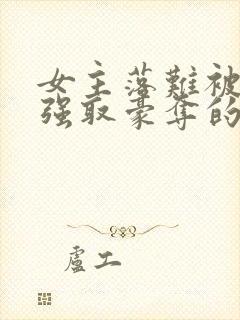 女主落難被
強取豪奪的
盧工